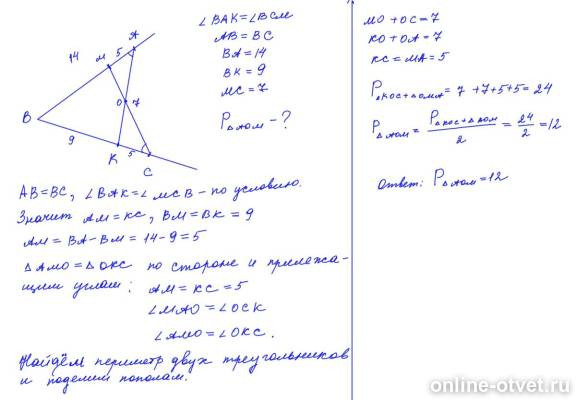 14
M
5
A
O
7
B
9
K
5
C
∠BAK=∠BCM
AB=BC
BA=14
BK=9
MC=7
P△AOM-?
AB=BC, ∠BAK=∠MCB - по условию.
Значит AM=KC, BM=BK=9
AM=BA-BM=14-9=5
△AMO=△OKC по стороне и прилежа-
щим углам:
AM=KC=5
∠MAO=∠OCK
∠AMO=∠OKC.
Найдём периметр двух треугольников
и поделим пополам.
MO+OC=7
KO+OA=7
KC=MA=5
P△KOC+△OMA=7+7+5+5=24
P△AOM=P△KOC+△AOM/2=24/2=12
Ответ: P△AOM=12
online-otvet.ru